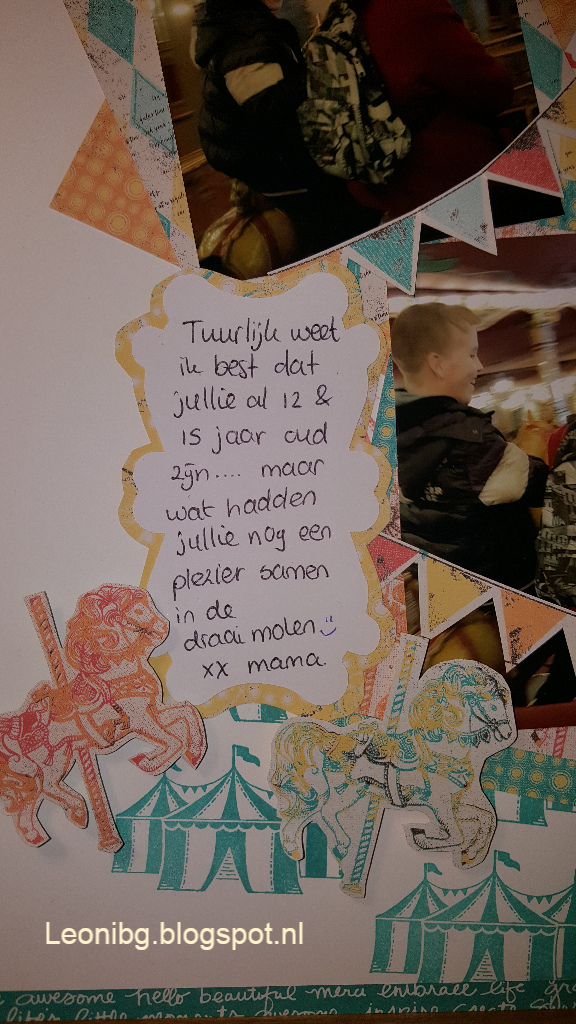 Tuurlijk weet
ik best dat
jullie al 12 &
15 jaar oud
zijn.... maar
wat hadden
jullie nog een
plezier samen
in de
draai molen
xx mama.
Leonibg.blogspot.nl
awesome hello beautiful merci embrace life
life's little moments awesome inspire create